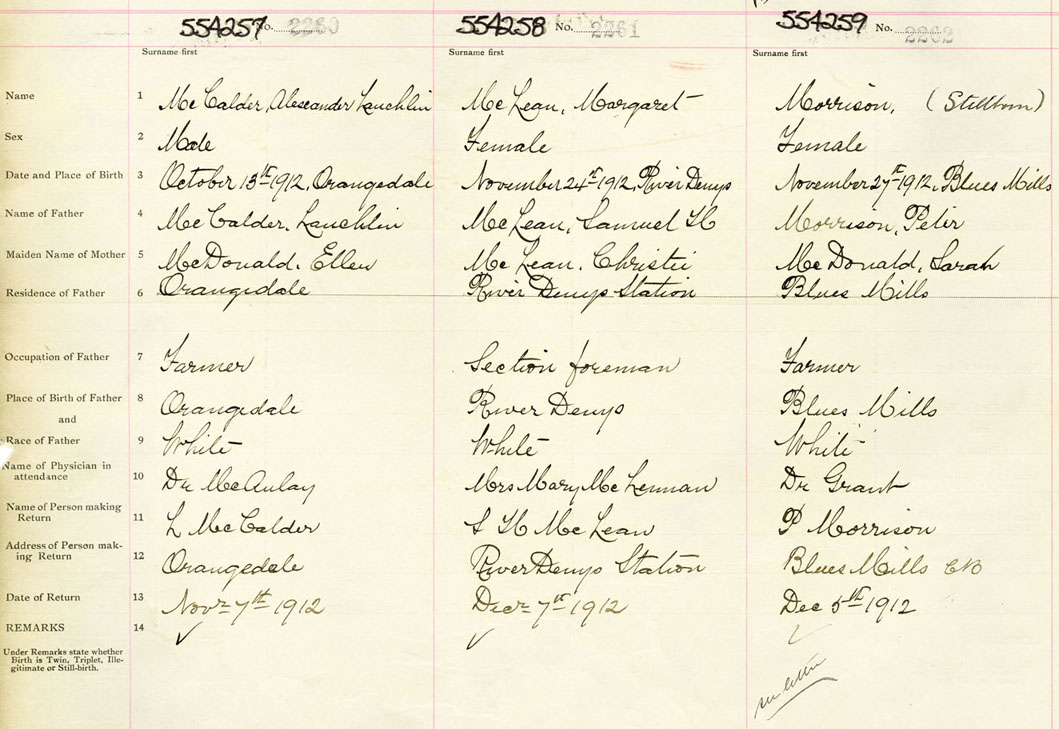 554257 No. 2260 554258 No. 2261 554259 No. 2262
Surname first Surname first Surname first
Name 1 McCalder, Alexander Lauchlin McLean, Margaret Morrison, (Stillborn)
Sex 2 Male Female Female
Date and Place of Birth 3 October 13th 1912, Orangedale November 24th 1912, River Denys November 27th 1912, Blues Mills
Name of Father 4 McCalder, Lauchlin McLean, Samuel H Morrison, Peter
Maiden Name of Mother 5 McDonald, Ellen McLean, Christie McDonald, Sarah
Residence of Father 6 Orangedale River Denys Station Blues Mills
Occupation of Father 7 Farmer Section foreman Farmer
Place of Birth of Father 8 Orangedale River Denys Blues Mills
and
Race of Father 9 White White White
Name of Physician in
attendance 10 Dr McAulay Mrs Mary McLennan Dr Grant
Name of Person making
Return 11 L McCalder S H McLean P Morrison
Address of Person mak-
ing Return 12 Orangedale River Denys Station Blues Mills CB
Date of Return 13 Novr 7th 1912 Decr 7th 1912 Dec 5th 1912
REMARKS 14
Under Remarks state whether
Birth is Twin, Triplet, Ille-
gitimate or Still-birth.